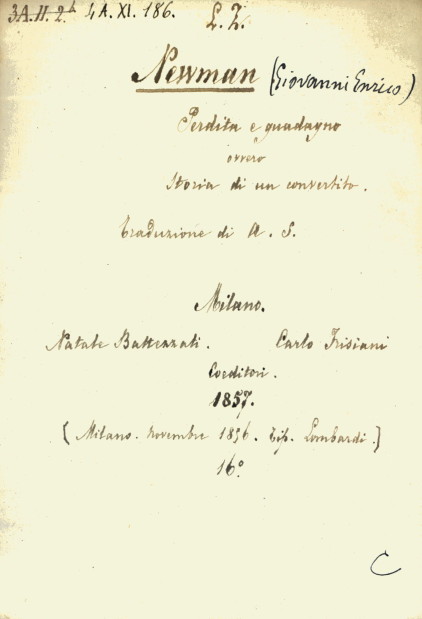 3A. II. 2b 4A. XI. 186. L. Z.
Newman (Giovanni Enrico)
Perdita e guadagno
ovvero
Storia di un convertito.
Traduzione di A. S.
Milano.
Natale Battezzati. Carlo Frisiani
Coeditori.
1857.
(Milano. novembre 1856. Tip. Lombardi.)
16°
C